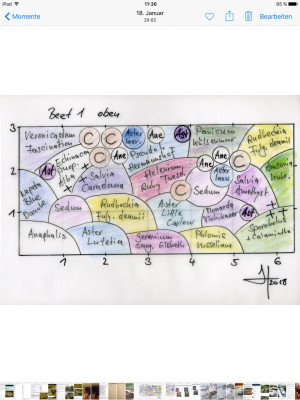 iPad
11:36
95 %
Momente
18. Januar
20:02
Bearbeiten
Beet 1 oben
3
2
1
Veronicastrum
Fascination
C
C
Aster
laev.
Ane
Ast
Panicum
Rudbeckia
Fulg. deamii
Echinacea
Purp.
Alba
C
Ane
Pseudo
Hermannshof
Ane
C
Ane
Aster
laev.
Salvia
Caradonna
Helenium
Ruby Tuesd.
C
Sedum
Salvia
Amethyst
Nepeta
Blue
Danube
Sedum
Rudbeckia
Fulg. deamii
Aster
Little
Carlow
Monarda
Ast
Sporobolus
+ Calamintha
Anaphalis
Aster
Lutetia
Geranium
sang. Elsbeth
Phlomis
1
2
3
4
5
6
2018